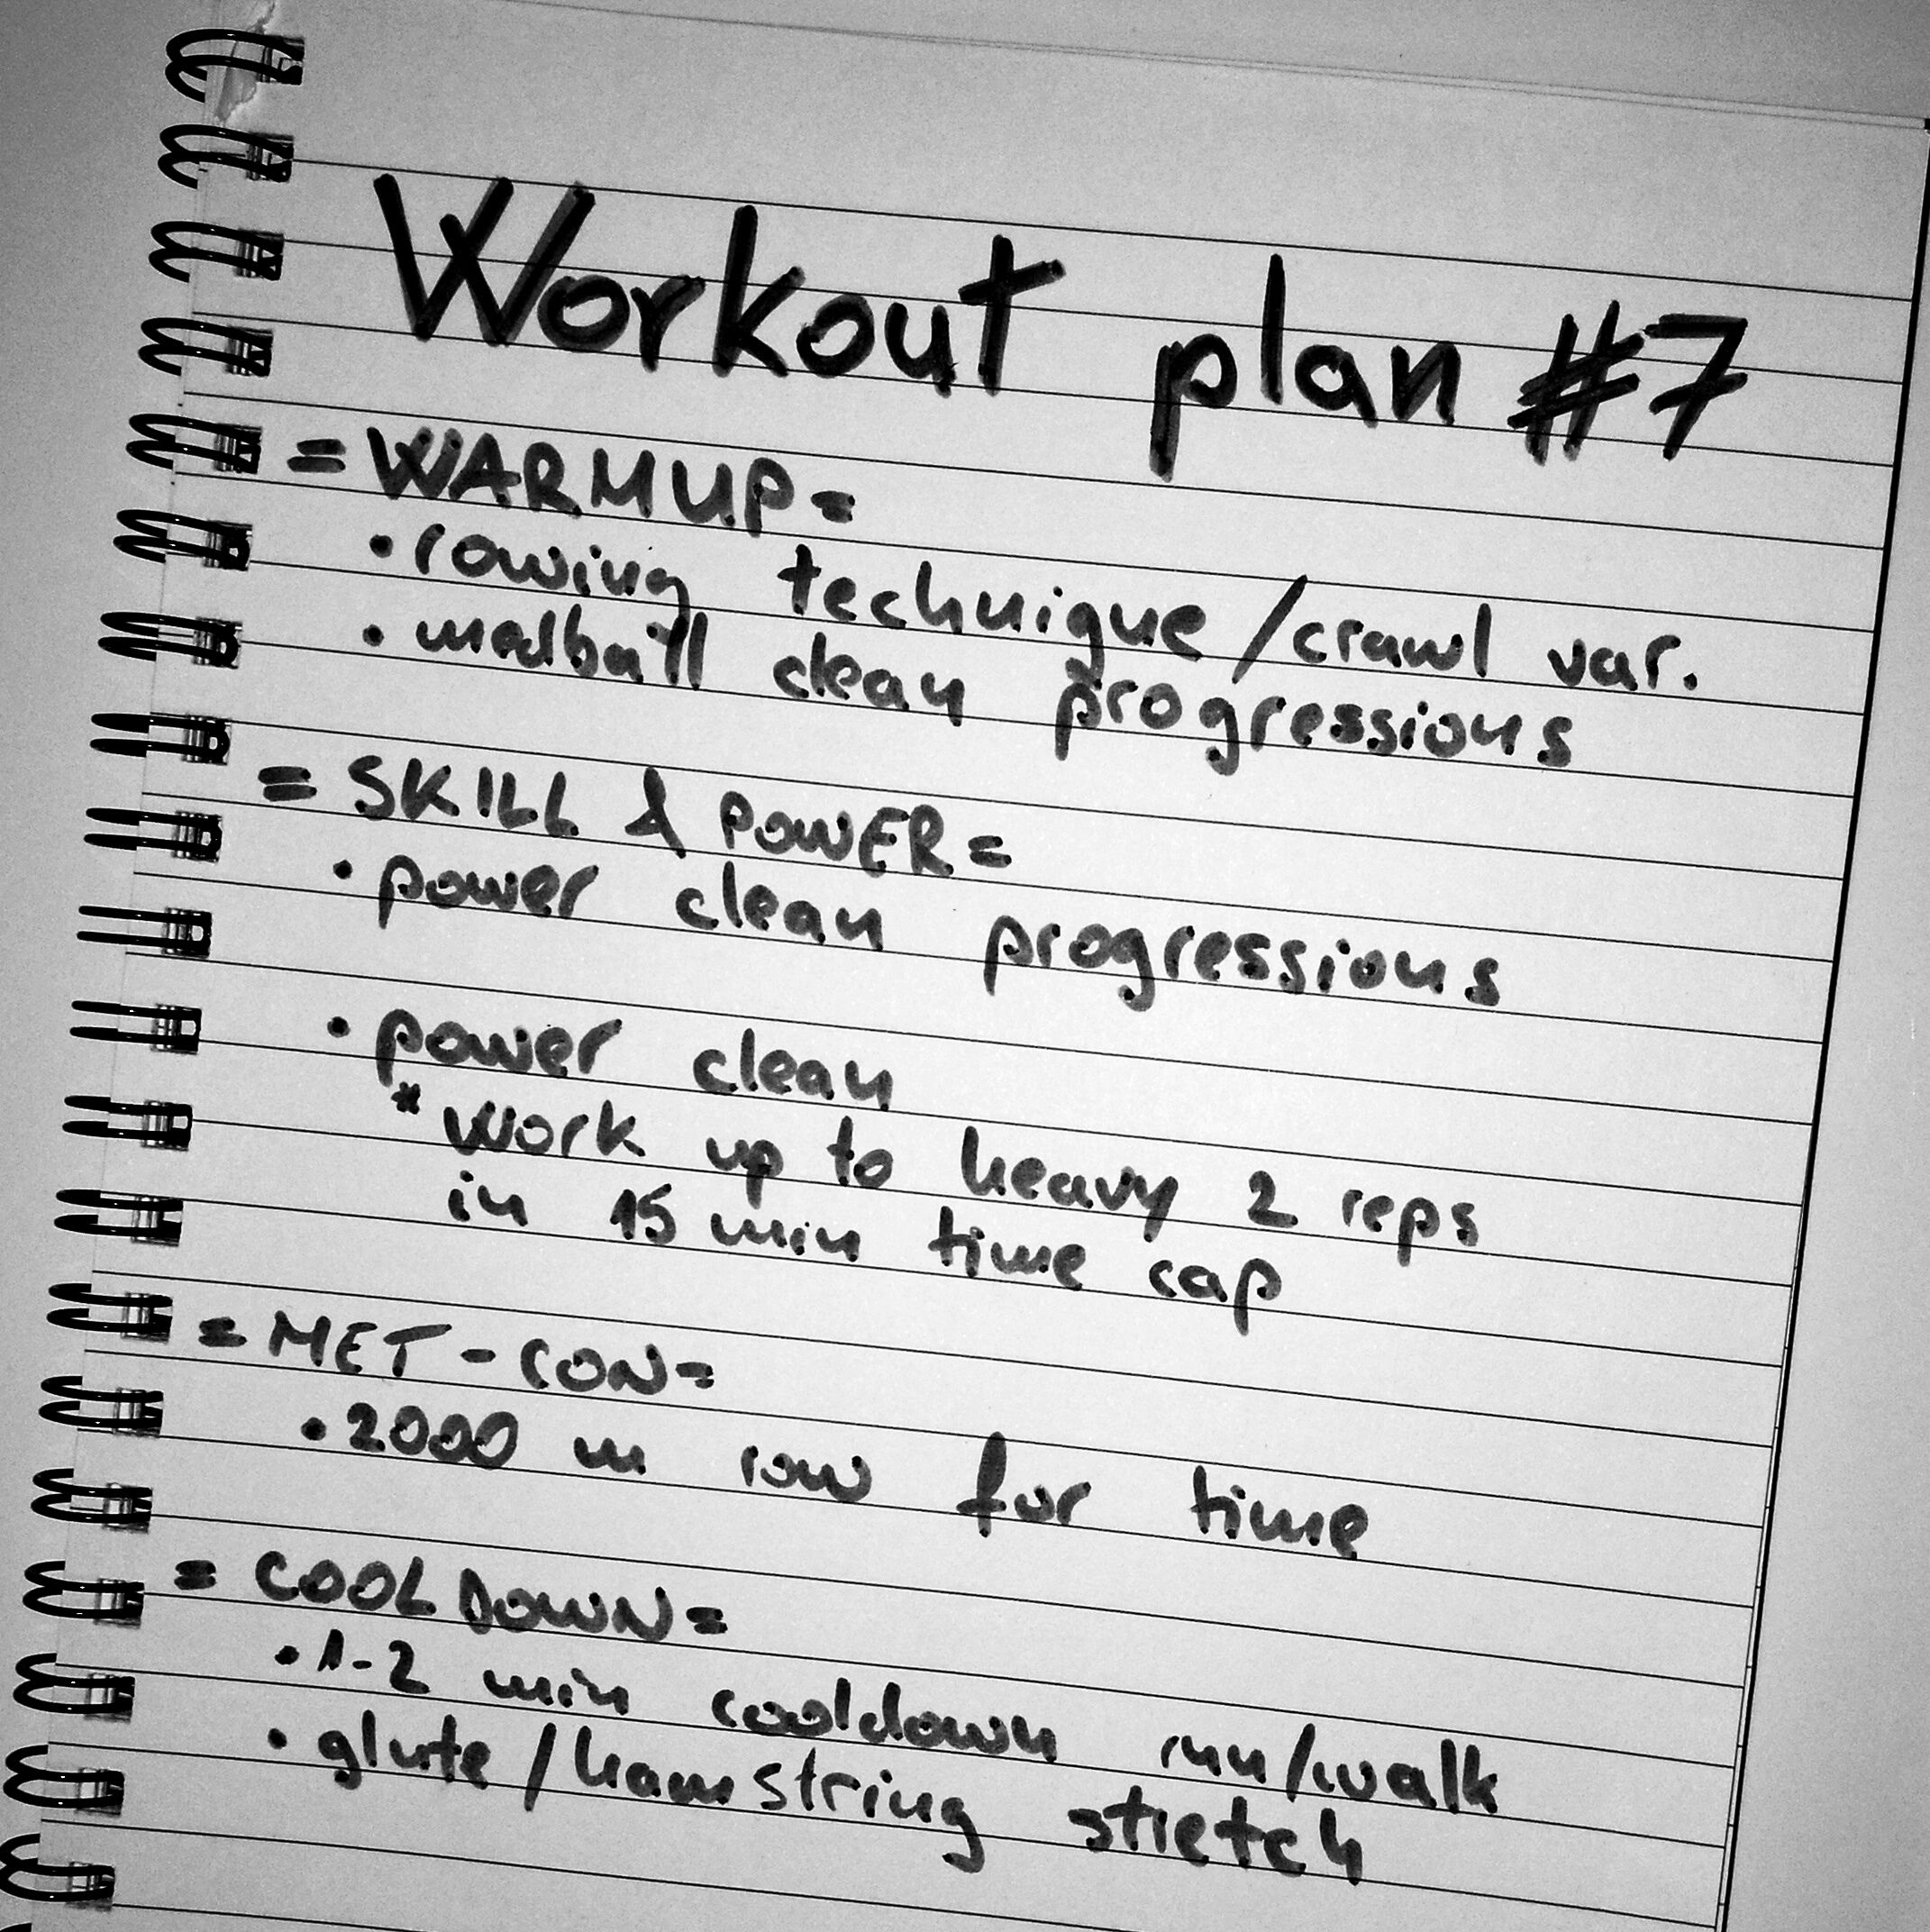 Workout plan #7
= WARMUP =
• rowing technique / crawl var.
• medball clean progressions
= SKILL & POWER =
• power clean progressions
• power clean
* work up to heavy 2 reps
in 15 min time cap
= MET-CON =
• 2000 m row for time
= COOL DOWN =
• 1-2 min cooldown run/walk
• glute / hamstring stretch